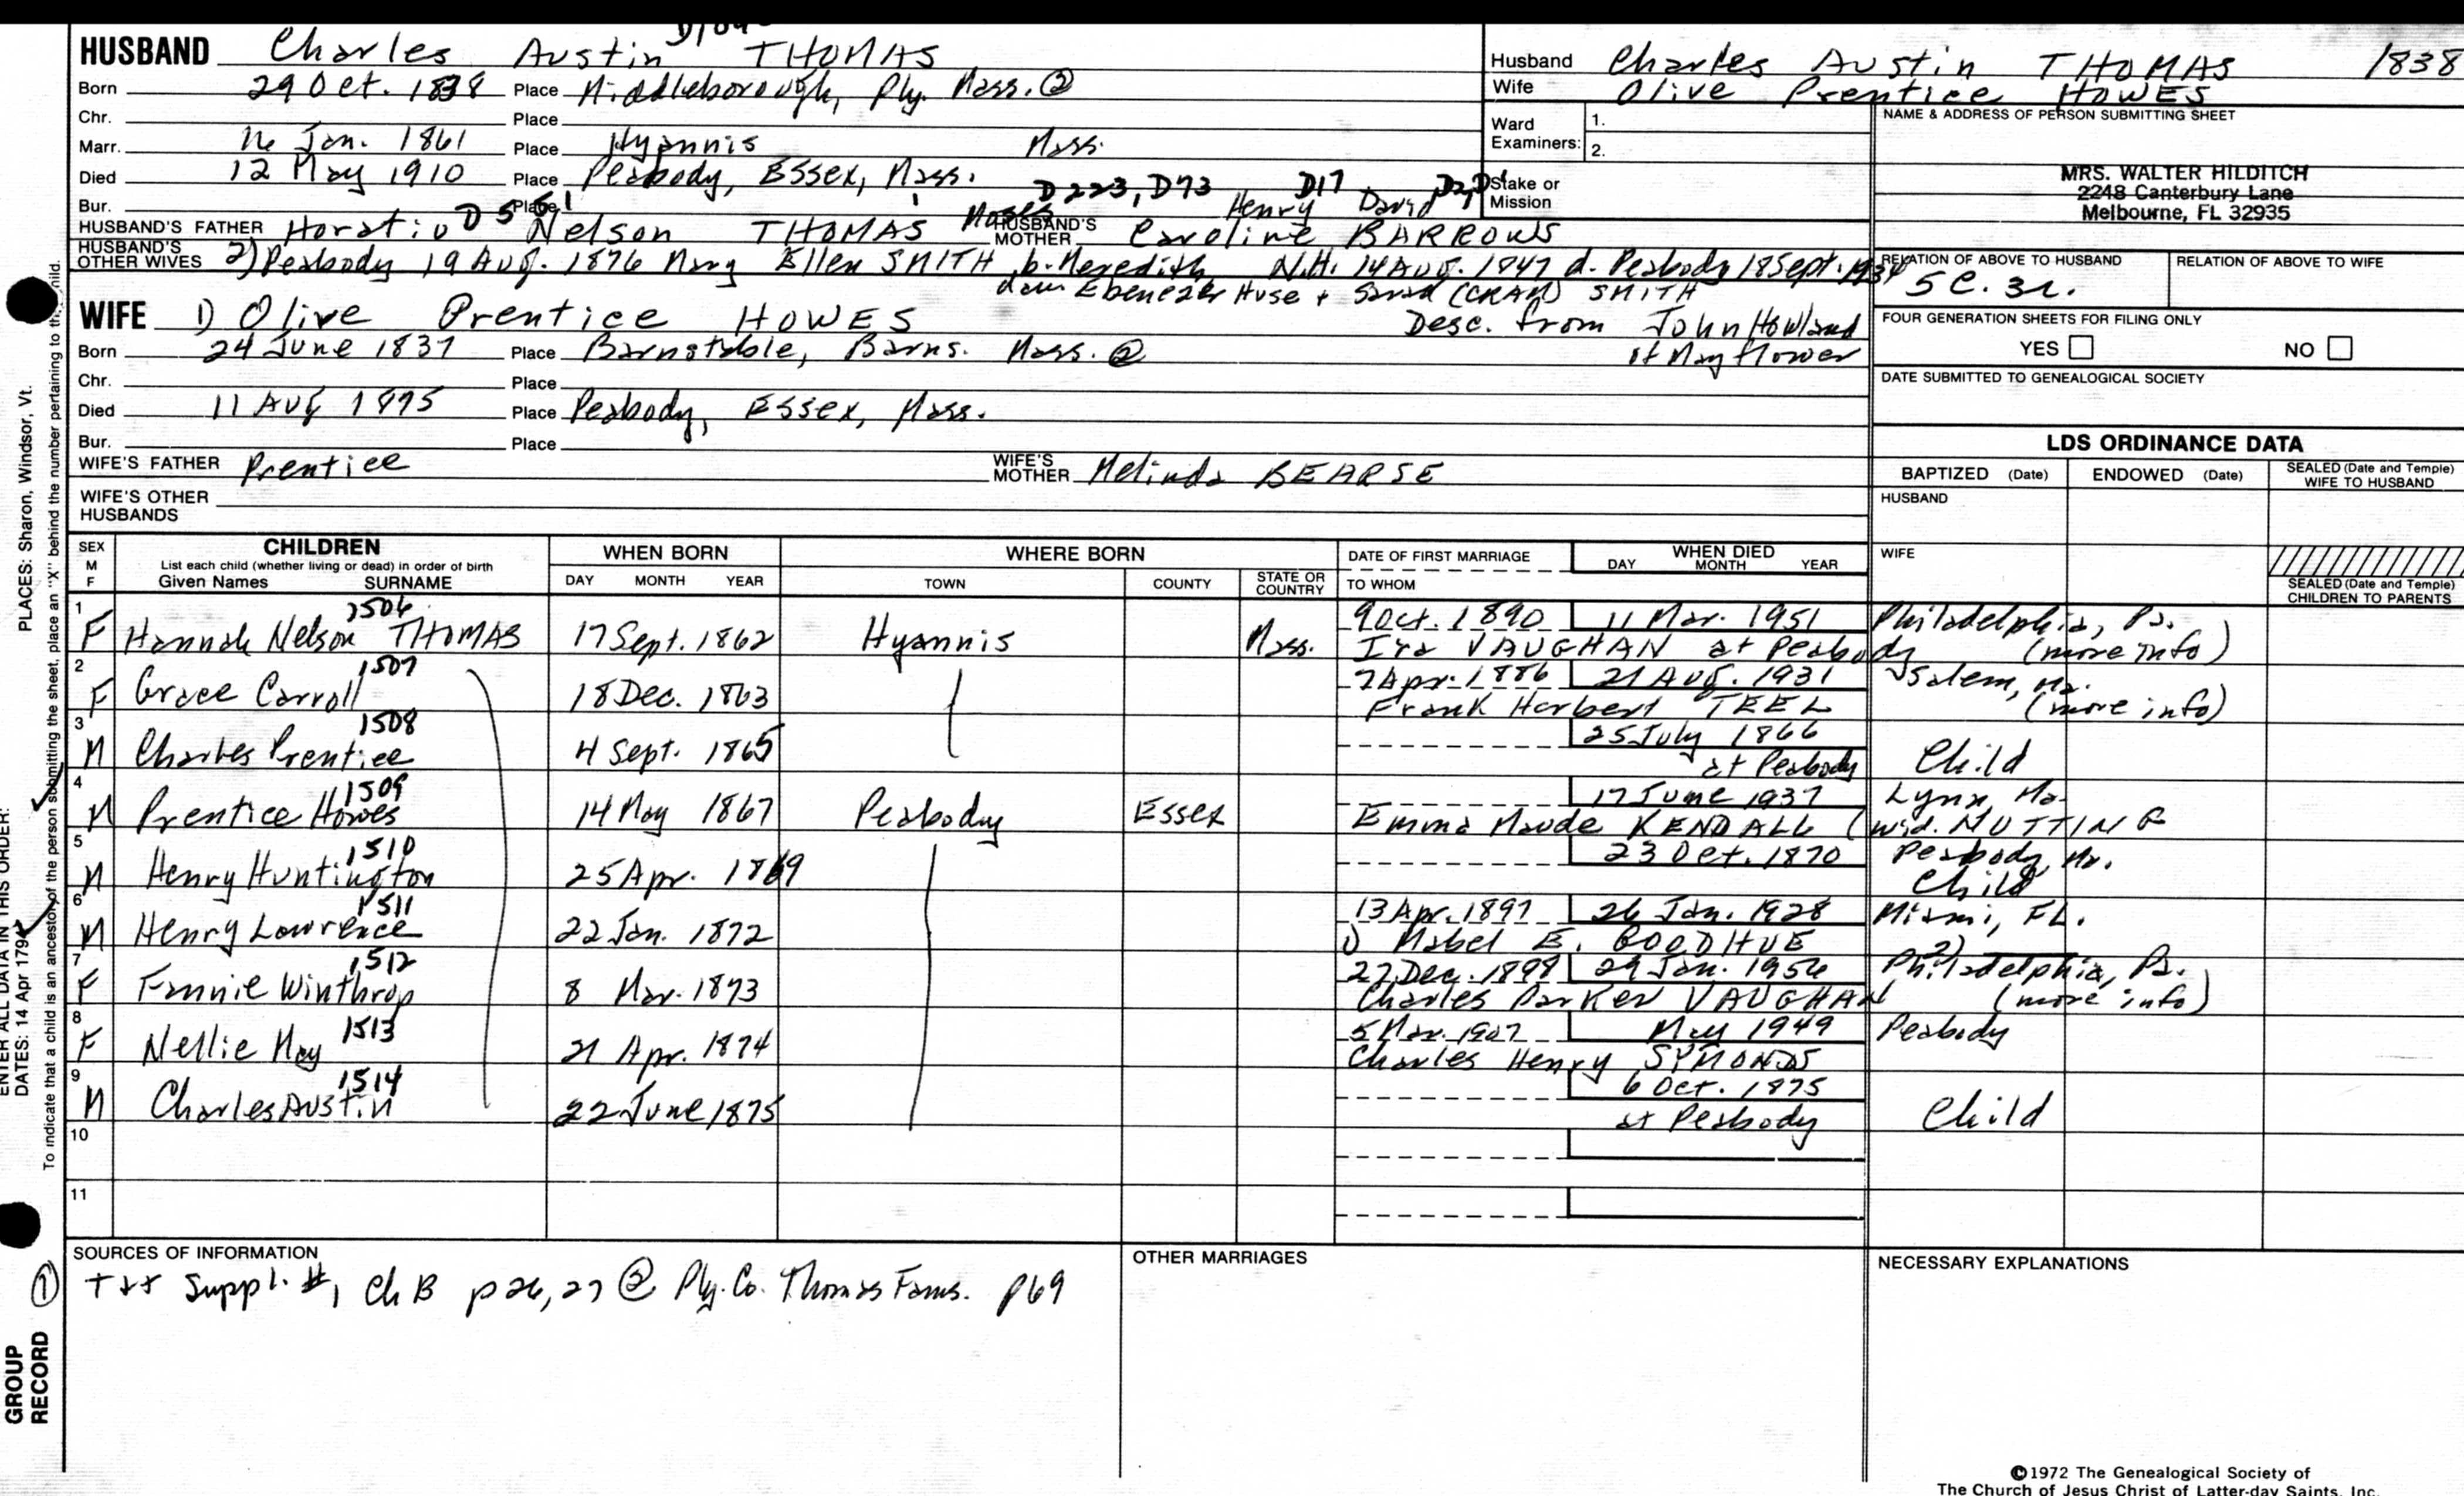 HUSBAND Charles Austin THOMAS
Born 29 Oct. 1838 Place Middleborough, Ply. Mass. ②
Chr. Place
Marr. Jan. 1861 Place Hyannis Mass.
Died 12 May 1910 Place Peabody, Essex, Mass.
D223, D73 D17
Bur. Place D551 Moses Henry David
HUSBAND'S FATHER Horatio Nelson THOMAS HUSBAND'S MOTHER Caroline BARROWS
HUSBAND'S OTHER WIVES 2) Peabody 19 Aug. 1876 Mary Ellen SMITH b. Meredith, N.H. 14 Aug. 1847 d. Peabody 18 Sept. 1934
dau Ebenezer Huse + Sarah (CRAM) SMITH
WIFE 1) Olive Prentice HOWES
Desc. from John Howland
of Mayflower
Born 24 June 1837 Place Barnstable, Barns. Mass. ②
Chr. Place
Died 11 Aug 1875 Place Peabody, Essex, Mass.
Bur. Place
WIFE'S FATHER Prentice WIFE'S MOTHER Melinda BEARSE
WIFE'S OTHER HUSBANDS
Husband Charles Austin THOMAS 1838
Wife Olive Prentice HOWES
Ward Examiners: 1.
2.
Stake or Mission
NAME & ADDRESS OF PERSON SUBMITTING SHEET
MRS. WALTER HILDITCH
2248 Canterbury Lane
Melbourne, FL 32935
RELATION OF ABOVE TO HUSBAND RELATION OF ABOVE TO WIFE
5C. 3r.
FOUR GENERATION SHEETS FOR FILING ONLY
YES NO
DATE SUBMITTED TO GENEALOGICAL SOCIETY
LDS ORDINANCE DATA
BAPTIZED (Date) ENDOWED (Date) SEALED (Date and Temple) WIFE TO HUSBAND
HUSBAND
WIFE
SEALED (Date and Temple) CHILDREN TO PARENTS
SEX M F CHILDREN WHEN BORN WHERE BORN DATE OF FIRST MARRIAGE WHEN DIED
List each child (whether living or dead) in order of birth
Given Names SURNAME DAY MONTH YEAR TOWN COUNTY STATE OR COUNTRY TO WHOM DAY MONTH YEAR
1 1506 9 Oct. 1890 11 Mar. 1951 Philadelphia, Pa.
F Hannah Nelson THOMAS 17 Sept. 1862 Hyannis Mass. Ira VAUGHAN at Peabody (more info)
2 1507 7 Apr. 1886 21 Aug. 1931 Salem, Ma.
F Grace Carroll 18 Dec. 1863 Frank Herbert TEEL (more info)
3 1508 25 July 1866
M Charles Prentice 4 Sept. 1865 at Peabody Child
4 1509 17 June 1937 Lynn, Ma.
M Prentice Howes 14 May 1867 Peabody Essex Emma Maude KENDALL (wid. NUTTING
5 1510 23 Oct. 1870 Peabody, Ma.
M Henry Huntington 25 Apr. 1869 Child
6 1511 13 Apr. 1897 26 Jan. 1928 Miami, FL.
M Henry Lawrence 22 Jan. 1872 1) Mabel E. GOODHUE 2)
7 1512 29 Jan. 1956 Philadelphia, Pa.
F Fannie Winthrop 8 Mar. 1873 Charles Parker VAUGHAN (more info)
8 1513 5 Mar. 1907 May 1949 Peabody
F Nellie May 21 Apr. 1874 Charles Henry SYMONDS
9 1514 6 Oct. 1875
M Charles Austin 22 June 1875 at Peabody Child
10
11
SOURCES OF INFORMATION OTHER MARRIAGES NECESSARY EXPLANATIONS
① Suppl. #1 Ch B p 26, 27 ② Ply. Co. Thomas Fams. p69
©1972 The Genealogical Society of
The Church of Jesus Christ of Latter-day Saints, Inc.
PLACES: Sharon, Windsor, Vt.
ENTER ALL DATA IN THIS ORDER:
DATES: 14 Apr 1794
To indicate that a child is an ancestor of the person submitting the sheet, place an "X" behind the number pertaining to that child.
GROUP
RECORD